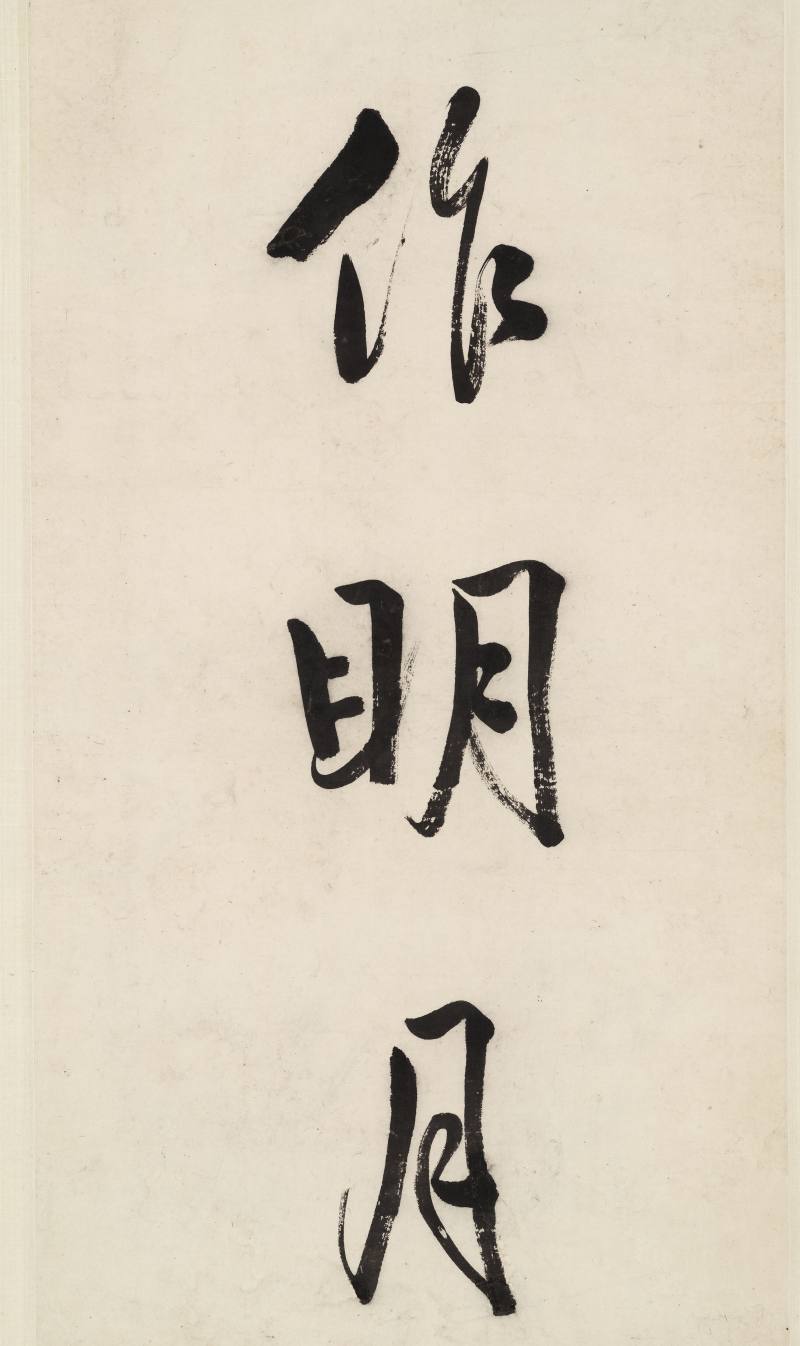 作明月